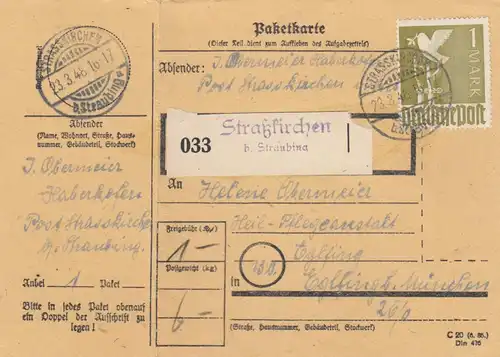 Paketkarte
(Dieser Teil dient zum Aufkleben des Aufgabezettels)
Absender: J. Obermeier Haberkofen
Post Strasskirchen
STRASSKIRCHEN
23.3.48.16-17
b. Straubing
1 MARK
Deutsche Post
STRASSKIRCHEN
Absender
(Name, Wohnort, Straße, Haus-
nummer, Gebäudeteil, Stockwerk)
J. Obermeier
Haberkofen
Post Strasskirchen
b. Straubing
Anbei 1 Paket
Bitte in jedes Paket obenauf
ein Doppel der Aufschrift zu
legen!
033
Straßkirchen
b. Straubing
An
Helene Obermeier
Heil-Pflegeanstalt
Eglfing
in Eglfing b. München
Freigebühr
1-
Postgewicht (kg)
6-
(Straße, Hausnummer, Gebäudeteil, Stockwerk)
C 20
Din 476